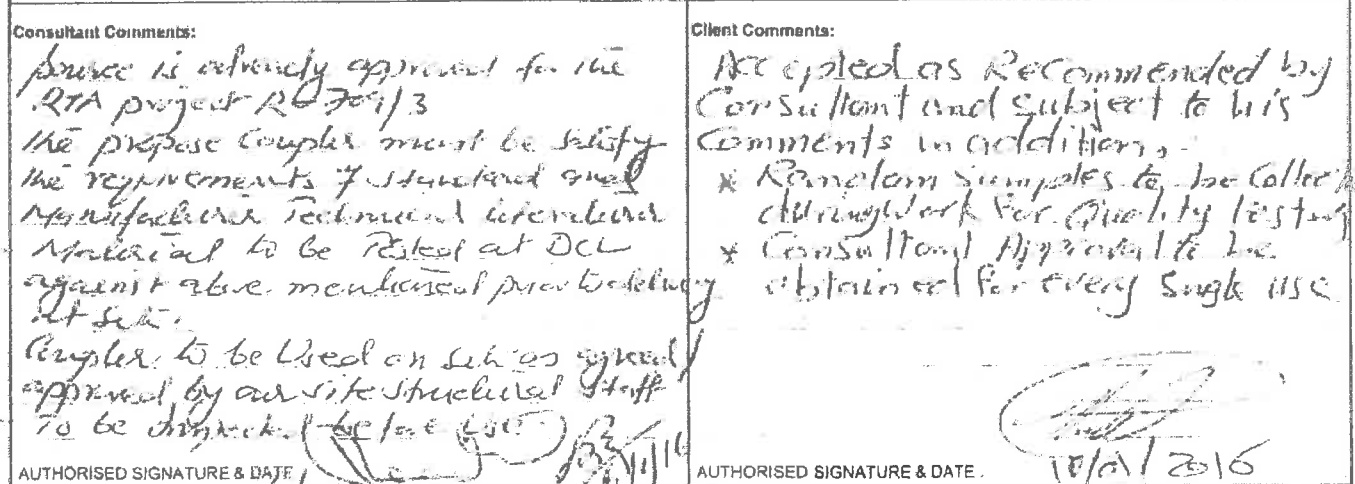 Consultant Comments:
Source is already approved for the
RTA project R 709/3
The propose Coupler must be satisfy
the requirements of standard and
Manufacturer Technical literature
Material to be Tested at DCL
against above mentioned prior to delivery
at site.
Coupler to be Used on site as agreed /
approved by our site structural staff
To be before use
AUTHORISED SIGNATURE & DATE
Client Comments:
Accepted as Recommended by
Consultant and Subject to his
Comments in addition,
* Ramdom Samples to be Collect
during Work for Quality testing
* Consultant Approval to be
obtained for every Single use
AUTHORISED SIGNATURE & DATE.
2016